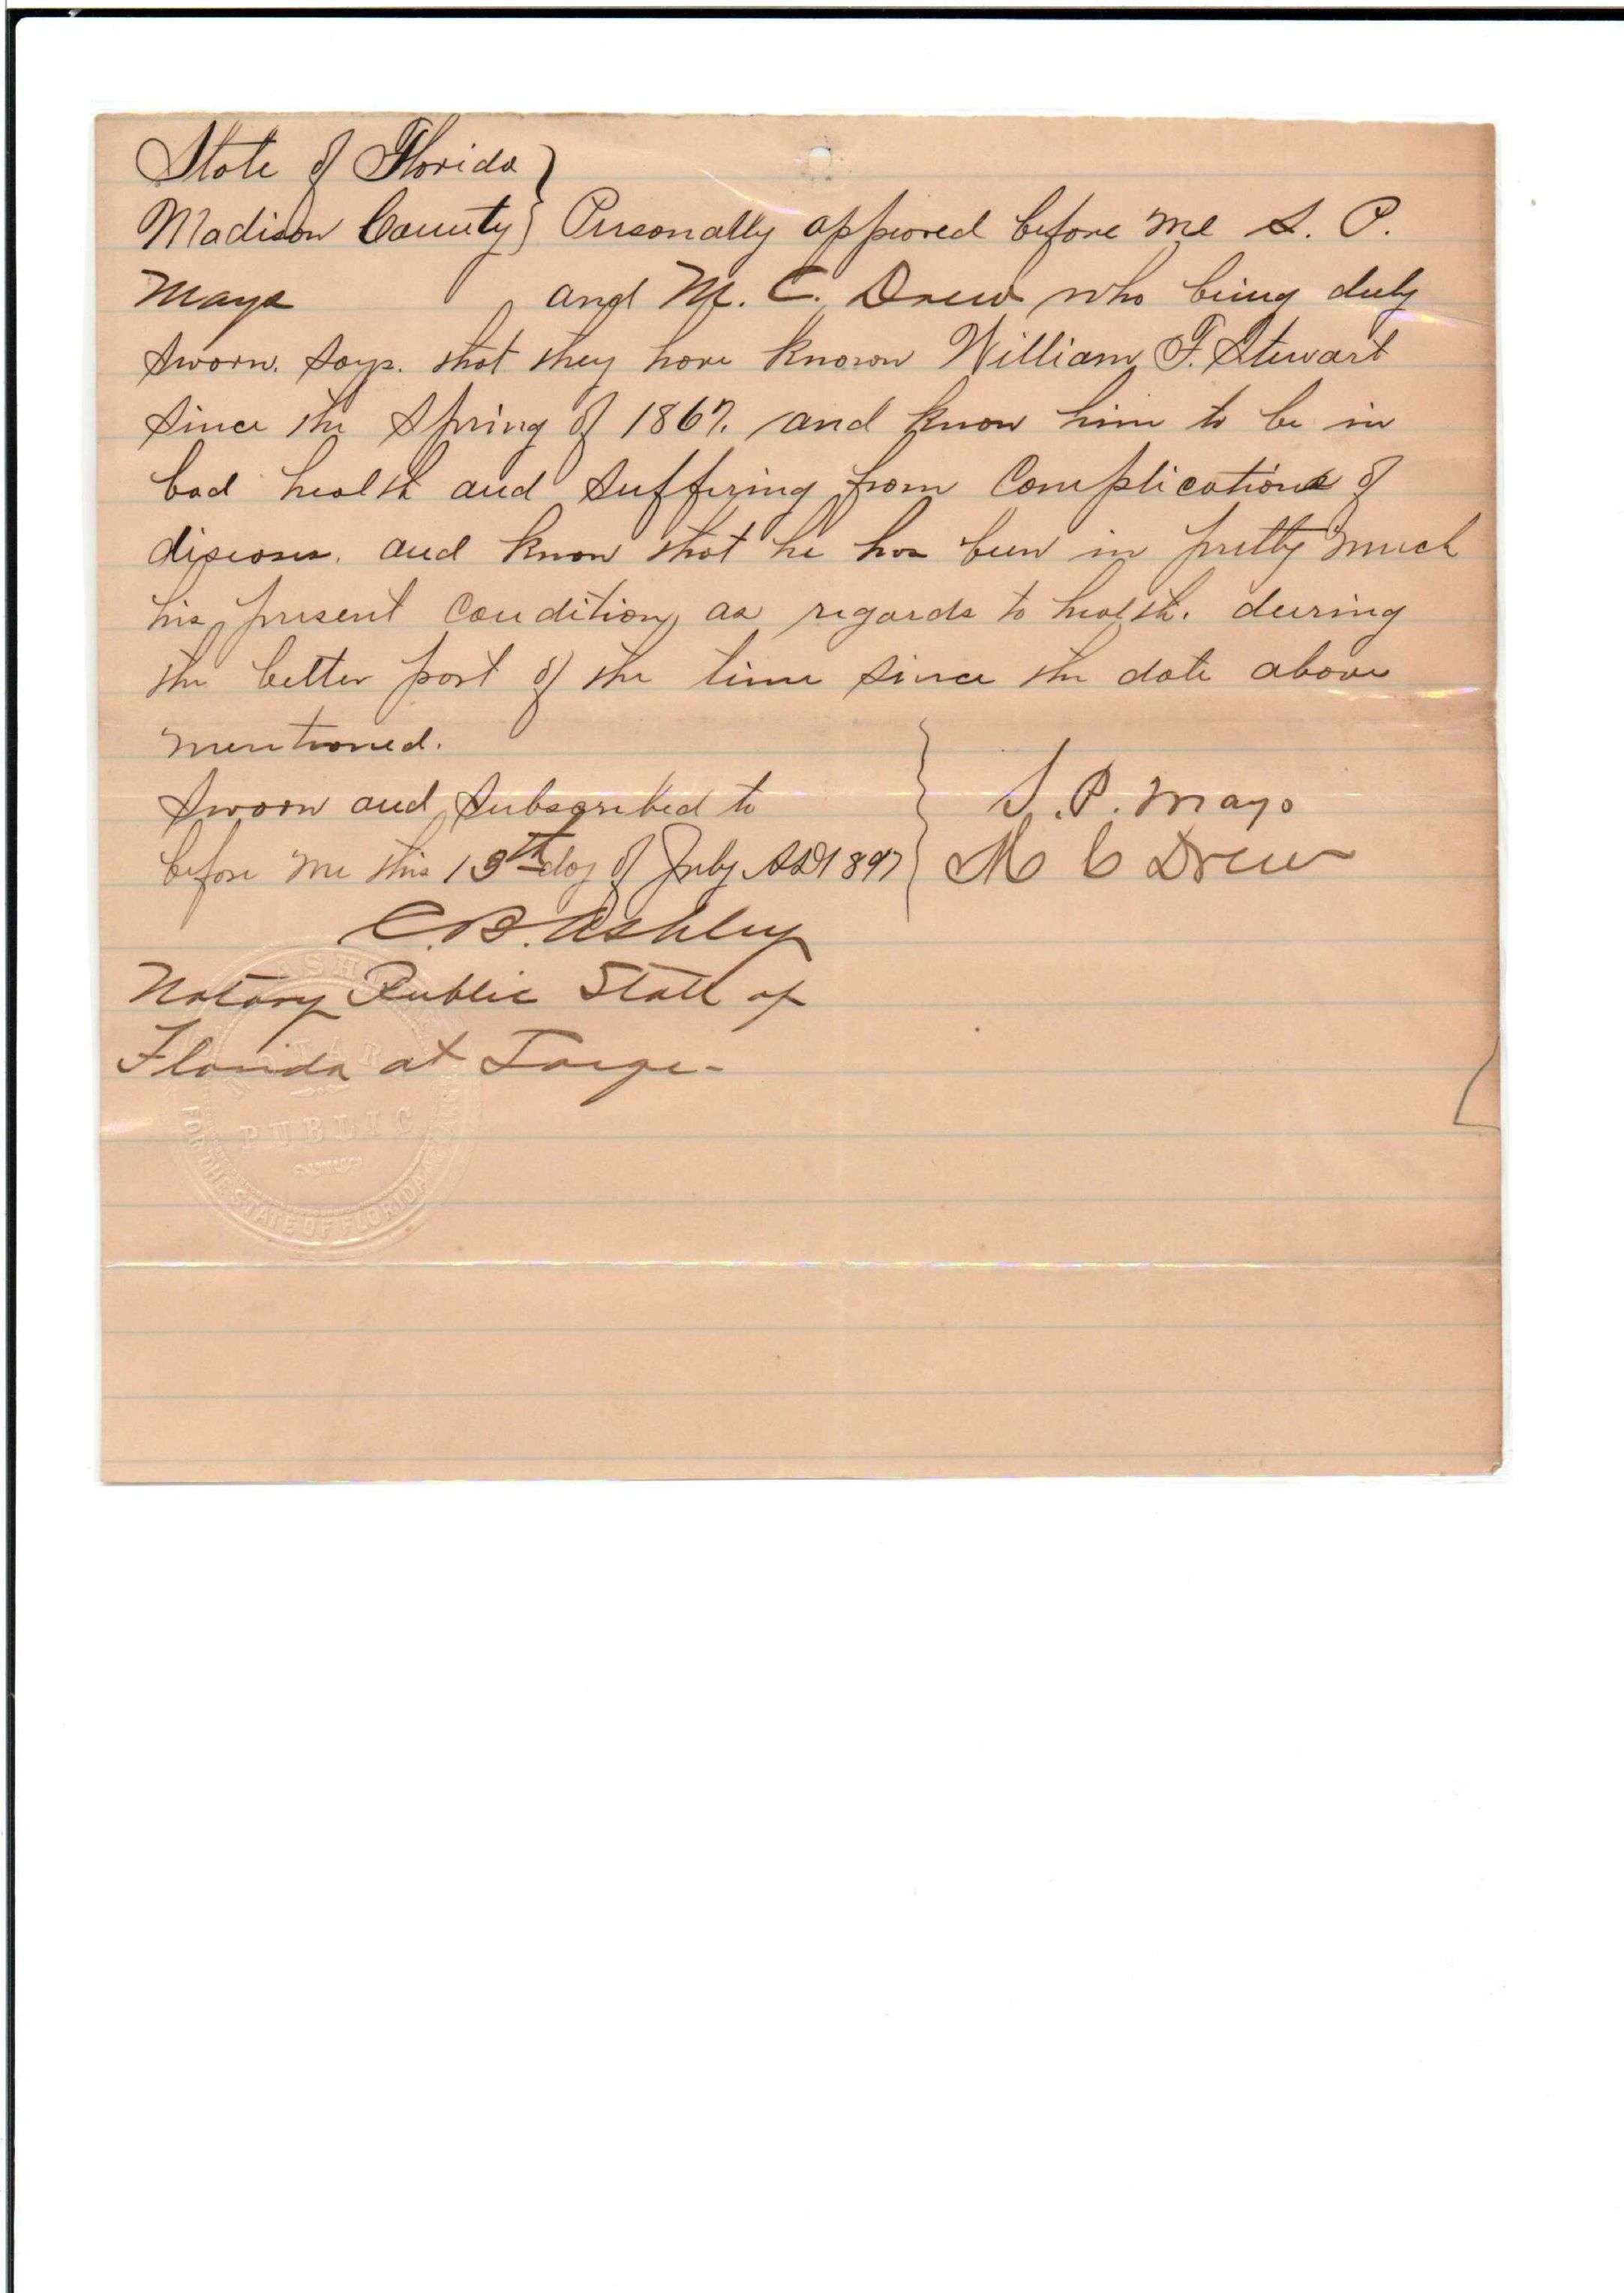 State of Florida }
Madison County } Personally appeared before me S. P.
Mays and M. C. Drew who being duly
sworn. says. that they have known William F. Stewart
since the Spring of 1867. and know him to be in
bad health and suffering from Complications of
diseases. and know that he has been in pretty much
his present Condition, as regards to health. during
the better part of the time since the date above
mentioned.
Sworn and Subscribed to } S. P. Mays
before me this 13th day of July AD 1897 } M C Drew
C. B. Ashley
Notary Public State of
Florida at Large-
NOTARY
PUBLIC
FOR THE STATE OF FLORIDA